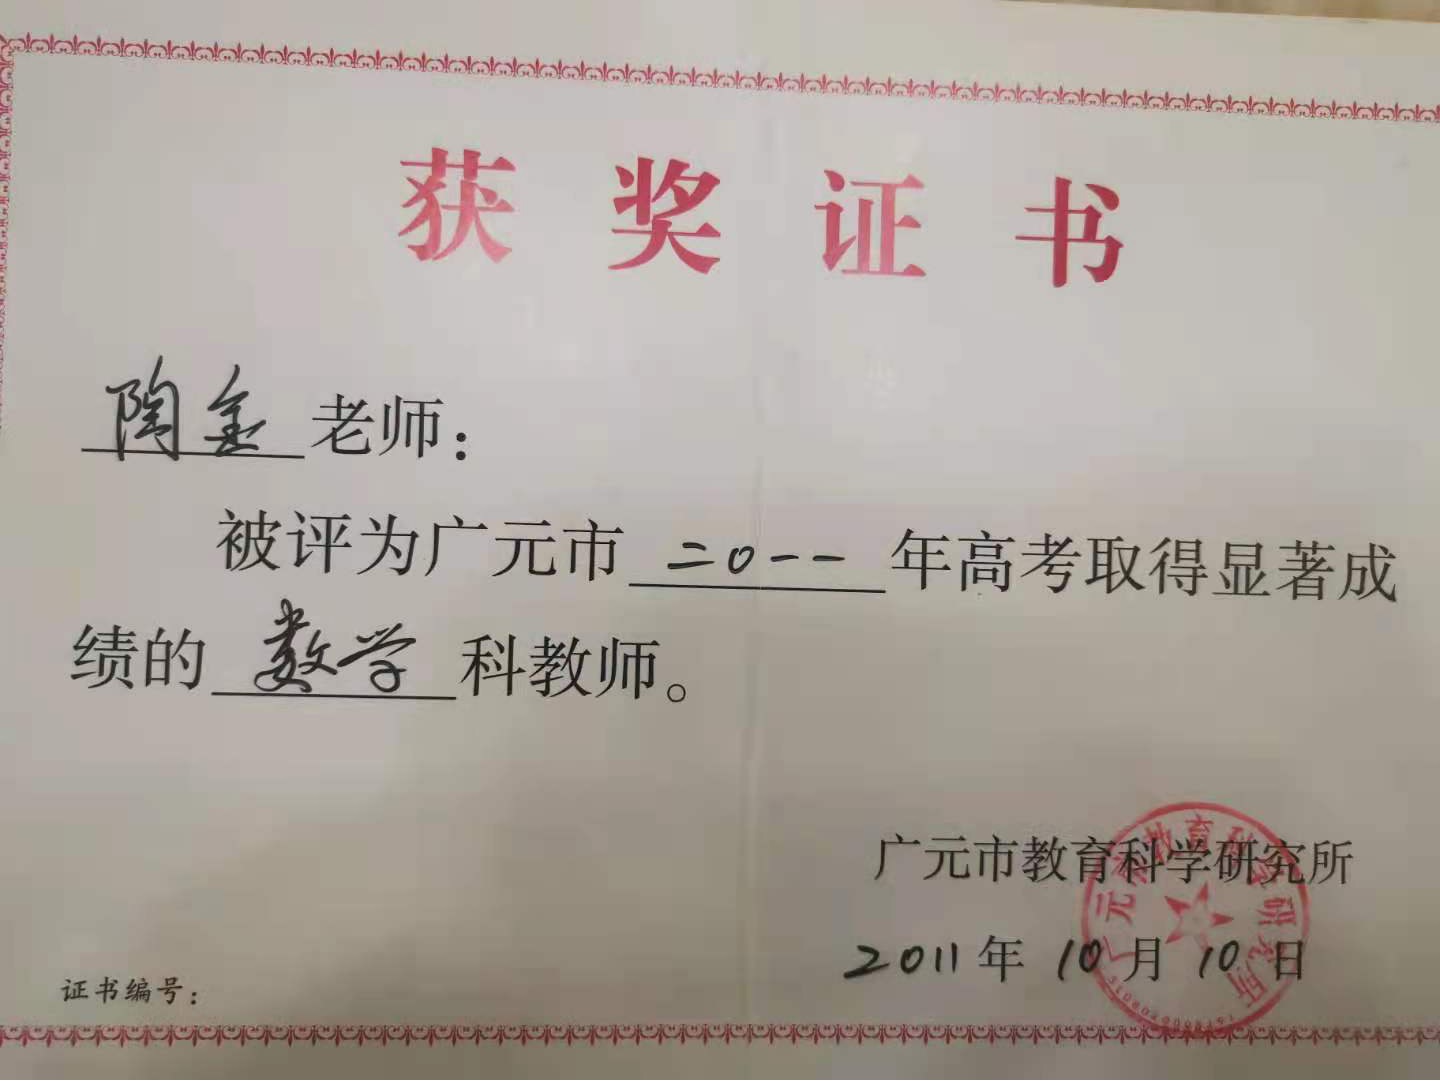 获奖证书
陶金老师：
被评为广元市二0一一年高考取得显著成
绩的数学科教师。
广元市教育科学研究所
2011年10月10日
证书编号：
广元市教育科学研究所